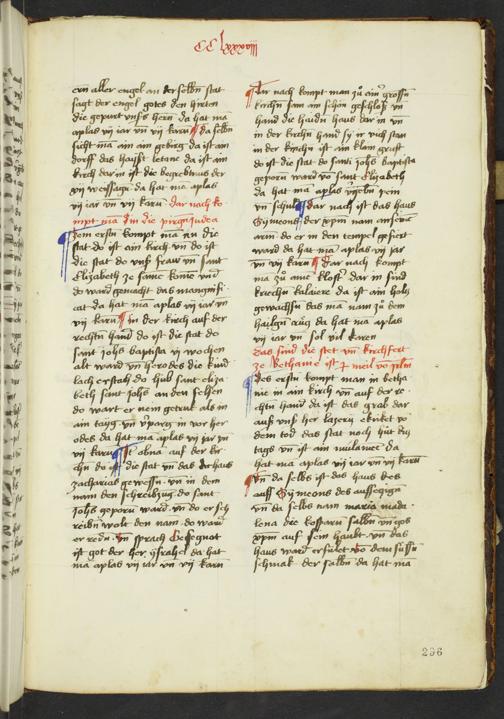 CClxxxxiiii
ern aller engel an derselbn stat
sagt der engel gotes den hirten
die gepurt unsers hern da hat mā
aplas vij iar vn̄ vij karn̄ da selbn
sicht mā ain ain gebirg da ist ain
dorff das haysst da ist ain
kirch dar in ist die begrebnus der
xij weissagn da hat mā aplas
vij iar vn̄ vij karn̄ dar nach ko
mpt mā Jn die pirg Judea
zem erstn kompt mā an die
stat do ist ain kirch vn̄ do ist
die stat do vnß fraw vn̄ sant
Elizabeth ze samē komē vn̄
do ward gemacht das magnifi
cat da hat mā aplas vij iar vn̄
vij karn̄ in der kirch auf der
rechtn hand do ist die stat do
sant johs baptista vj wochen
alt ward vn̄ herodes die kind
lach erstach do hub sant eliza
beth sant johs an den felsen
do wart er nem getruk als in
ain tayg vn̄ vparg in vor her
odes da hat mā aplas vij iar vn̄
vij karn̄ Jst obna auf der kir
chn do ist die stat vn̄ das haus
zacharias gewesn vn̄ in dem
nam den schreibzug do sant
johs geporn ward vn̄ do er sch
reibn wolt den nam do ward
er redn vn̄ sprach Gesegnot
ist got der her ysrahel da hat
mā aplas vij iar vn̄ vij karn̄
Dar nach kompt man zů ainr grossn
kirchn sam ain schön geschloß vn̄
hand die haidn haus dar in vn̄
in der kirchn hand sy ir vich stan
in der kirchn ist ain klain gruft
do ist die stat do sant johs baptista
geporn ward vō sant Elizabeth
da hat mā aplas vgebn pein
vn̄ schuld dar nach ist das haus
Symeons der xp̄m nam an sein
arm do er in den tempel gefiert
ward da hat mā aplas vij iar
vn̄ vij karn̄ Dar nach kompt
ma zů ainē klost dar in sind
kriechn kalaiere da ist ain holz
gewachsn das mā nam zů dem
hailgn crüz da hat mā aplas
vij iar vn̄ sol vil karen
das sind die stet vn̄ kirchfert
ze Bethanie ist meil vō
des erstn kompt man in betha
nie in ain kirch vn̄ auf der re
chtn hand da ist das grab dar
auß vnß her lazerū erkikt vō
dem tod das stat noch hüt diß
tags vn̄ ist ain da
hat mā aplas vij iar vn̄ vij karn̄
vn̄ da selbs ist das haus des
auss Symeons des aussezzign
vn̄ da selbs nam maria mada
lena die kosparn salbn vn̄ gos
xp̄m auf sein haubt vn̄ das
haus ward erfület vō dem süssn
schmak der salbn da hat mā
296